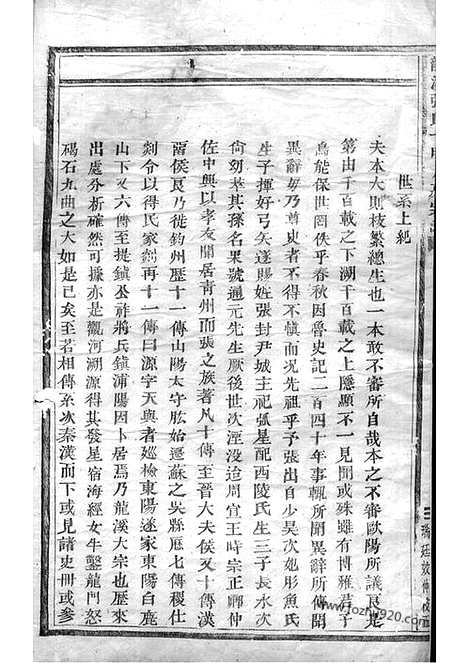 世系上紀
夫本大則枝繁總生也一本敢不審所自哉本之不審歐陽所議良是
第由千百載之下溯千百載之上隱顯不一見聞或殊雖有博雅君子
烏能保世罔佚乎春秋因魯史記二百四十年事輒所聞異辭所傳聞
異辭毋乃尊史者不得不慎而況先祖乎予張出自少昊次妃肜魚氏
生子揮好弓矢遂賜姓張封尹城主祀弧星配西陵氏生三子長水次
尙幼萃其孫名果號通元先生厥後世次湮没迨周宣王時宗正卿仲
佐中興以孝友聞居青州而張之族著凡十傳至晉大夫侯又十傳漢
畱侯良乃徙鈞州歷十一傳山陽太守肱始遷蘇之吳縣厯七傳稷仕
剡令以得氏家剡再十一傳曰源字天與者巡檢東陽遂家東陽白鹿
山下又六傳至提鎮公祚將兵鎮浦陽因卜居焉乃龍溪大宗也歷來
出處分析確然可據亦是觀河溯源得其發星宿海經女牛鑿龍門怒
碣石九曲之大如是已矣至若相傳系次秦漢而下或見諸史冊或參